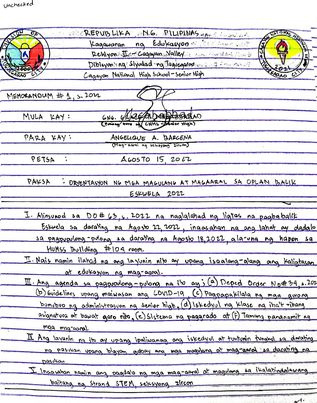 Unchecked
REPUBLIKA NG PILIPINAS
Kagawaran ng Edukasyon
Rehiyon II - Cagayan Valley
Dibisyon ng Siyudad ng Tuguegarao
Cagayan National High School - Senior High
MEMORANDUM # 1, s. 2022
MULA KAY : GNG.
PARA KAY : ANGELIQUE A. BARCENA
PETSA : AGOSTO 15, 2022
PAKSA : ORIENTASYON NG MGA MAGULANG AT MAGAARAL SA OPLAN BALIK
ESKWELA 2022
I. Alinsunod sa DO# 63, s. 2022 na naglalahad ng ligtas na pagbabalik
Eskwela sa darating na Agosto 22, 2022, inaasahan na ang lahat ay dadalo
sa pagpupulong-pulong sa darating na Agosto 18, 2022, ala-una ng hapon sa
HUMSS Building #104 room.
II. Nais namin ilahad na ang layunin nito ay upang isaalang-alang ang kaligtasan
at edukasyon ng mag-aaral.
III. Ang agenda sa pagpupulong-pulong na ito ay; (a) Deped Order No #34, s. 2022
(b) Guidelines upang maiwasan ang COVID-19 (c) Pagpapakilala ng mga guro
bumubuo ng administrasyon ng senior high, (d) Iskedyul ng klase ng iba't-ibang
asignatura at bawat guro nito, (e) Sistema ng pagaaral at (f) Tamang pananamit ng
mga mag-aaral.
IV. Ang layunin na ito ay upang ipaliwanag ang iskedyul at tuntunin tungkol sa darating
na pasukan upang bigyan gabay ang mga magulang at mag-aaral sa darating na
pasukan
V. Inaasahan namin ang pagdalo ng mga mag-aaral at magulang sa ikalabindalawang
baitang ng strand STEM, seksyong zircon